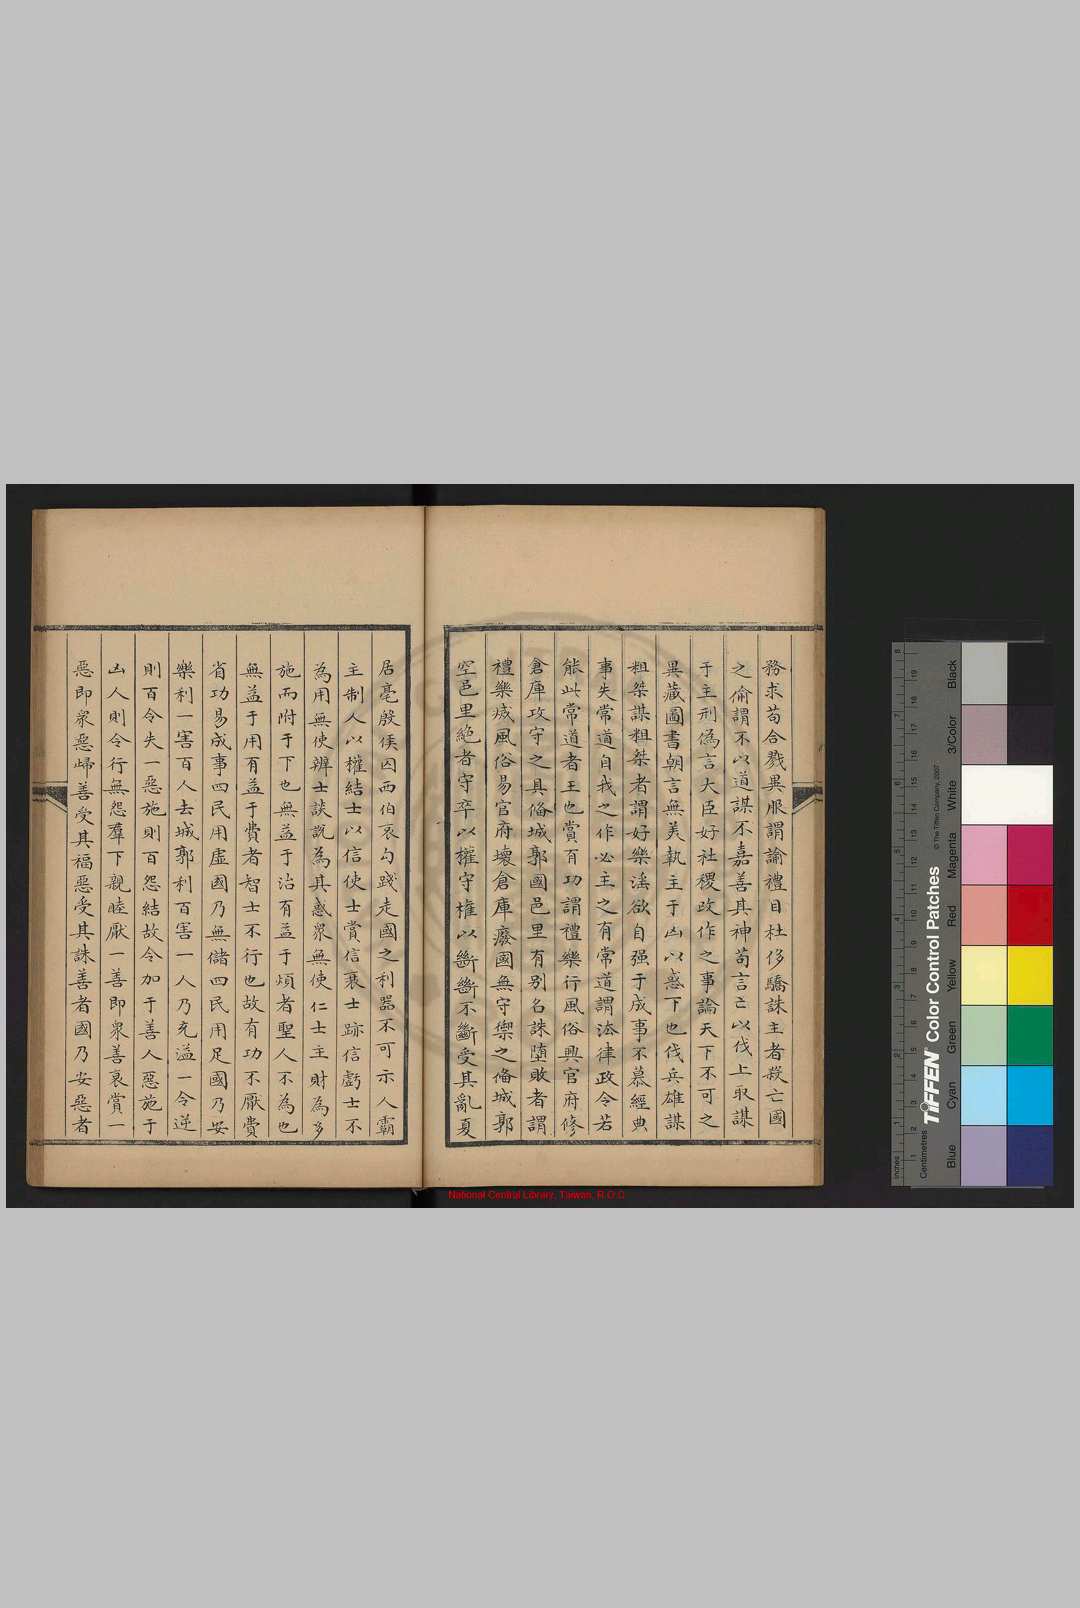 務求苟合戮異服謂諭禮目杜侈驕誅主者殺亡國
之倫謂不以道謀不嘉善其神苟言亡以伐上取謀
于主刑偽言大臣好社稷政作之事論天下不可之
異蔵圖書朝言無美執主于凶以惑下也伐兵雄謀
粗桀謀粗桀者謂好樂滛欲自强于成事不慕經典
事失常道自我之作必主之有常道謂法律政令若
能此常道者王也賞有功謂禮樂行風俗興官府修
倉庫攻守之具俻城郭國邑里有别名誅墮敗者謂
禮樂烕風俗易官府壞倉庫廢國無守禦之俻城郭
空邑里絶者守卒以權守權以斷斷不斷受其亂夏
居亳殷侯囚西伯哀勾踐走國之利器不可示人霸
主制人以權結士以信使士賞信衰士䟱信虧士不
為用無使辨士談說為其惑衆無使仁士主財為多
施而附于下也無益于治有益于煩者聖人不為也
無益于用有益于費者智士不行也故有功不厭費
省功易成事四民用虛國乃無儲四民用足國乃安
樂利一害百人去城郭利百害一人乃充溢一令逆
則百令失一惡施則百怨結故令加于善人惡施于
凶人則令行無怨羣下親睦厭一善即衆善衰賞一
惡即衆惡歸善受其福惡受其誅善者國乃安惡者
National Central Library, Taiwan, R.O.C
Inches
Centimetres
TIFFEN® Color Control Patches
© The Tiffen Company, 2007
Blue
Cyan
Green
Yellow
Red
Magenta
White
3/Color
Black